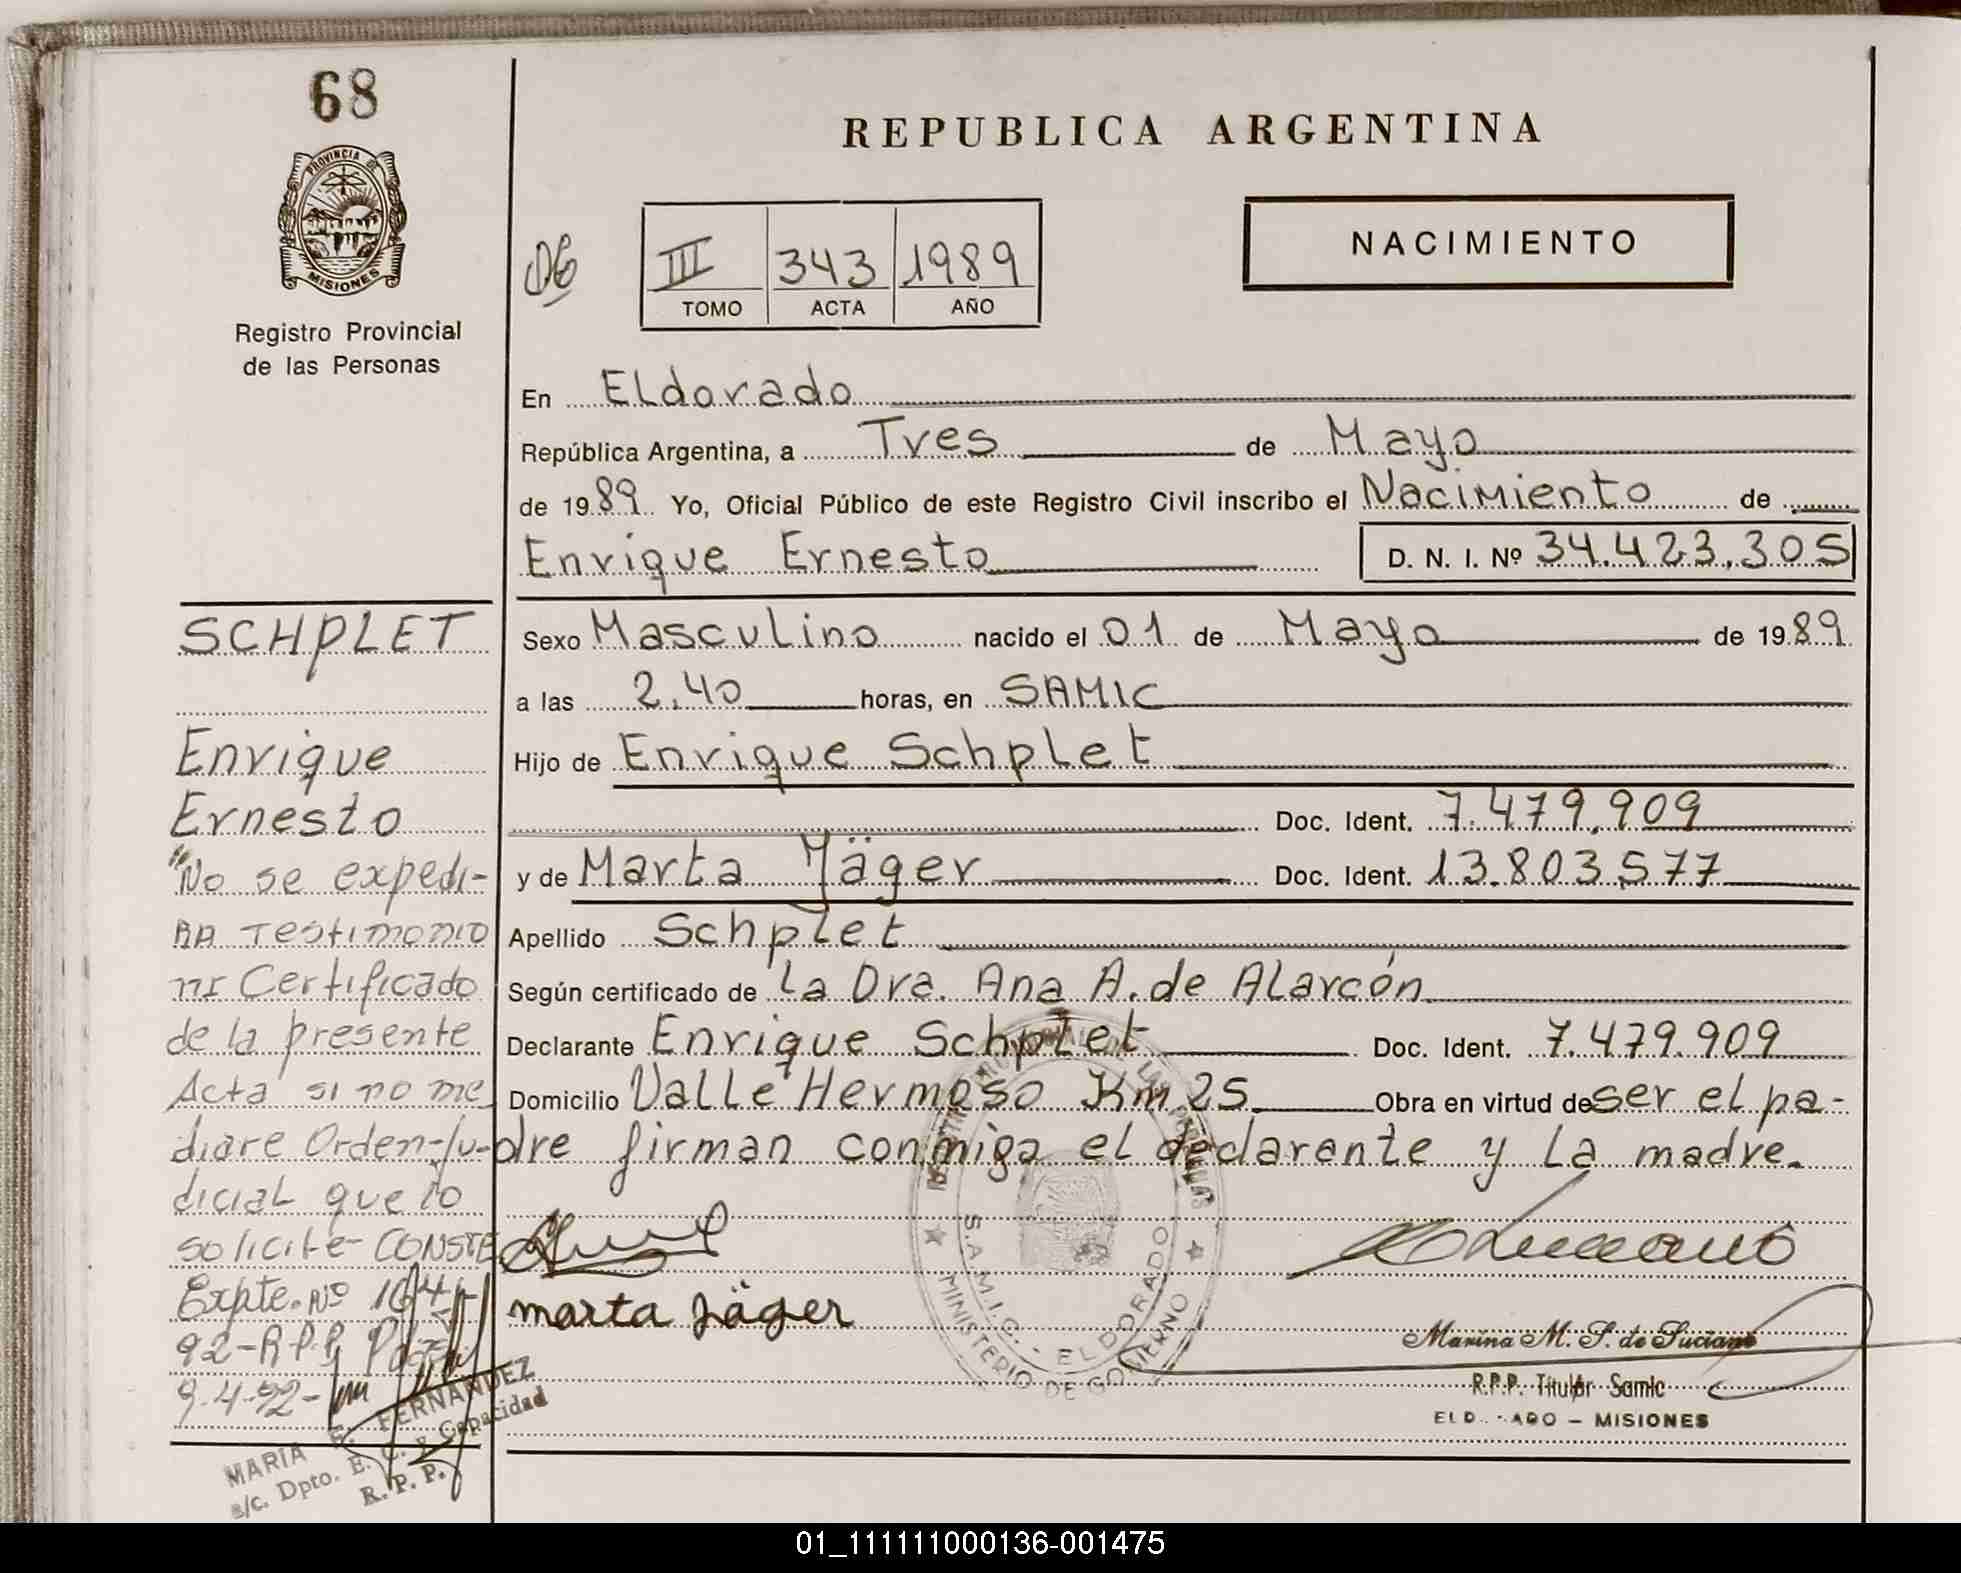 68
PROVINCIA DE
MISIONES
Registro Provincial
de las Personas
REPUBLICA ARGENTINA
NACIMIENTO
06
III 343 1989
TOMO ACTA AÑO
En Eldorado
República Argentina, a Tres de Mayo
de 1989 Yo, Oficial Público de este Registro Civil inscribo el Nacimiento de
Enrique Ernesto D. N. I. Nº 34.423.305
Sexo Masculino nacido el 01 de Mayo de 1989
a las 2,40 horas, en SAMIC
Hijo de Enrique Schplet
Doc. Ident. 7.479.909
y de Marta Jäger Doc. Ident. 13.803.577
Apellido Schplet
Según certificado de la Dra. Ana A. de Alarcón
Declarante Enrique Schplet Doc. Ident. 7.479.909
Domicilio Valle Hermoso Km 25 Obra en virtud de ser el pa-
dre firman conmigo el declarante y la madre.
marta jäger
S.A.M.I.C. - ELDORADO
MINISTERIO DE GOBIERNO
Marina M. S. de Luciano
R.P.P. Titular Samic
ELD ADO - MISIONES
SCHPLET
Enrique
Ernesto
"No se expedi-
RA Testimonio
ni Certificado
de la presente
Acta si no me
diare Orden Ju-
dicial que lo
solicite - CONSTE
Expte. Nº
92-R.P.P.
9-4-92-
MARIA E. FERNANDEZ
a/c. Dpto. E. C. y Capacidad
R. P. P.
01_111111000136-001475